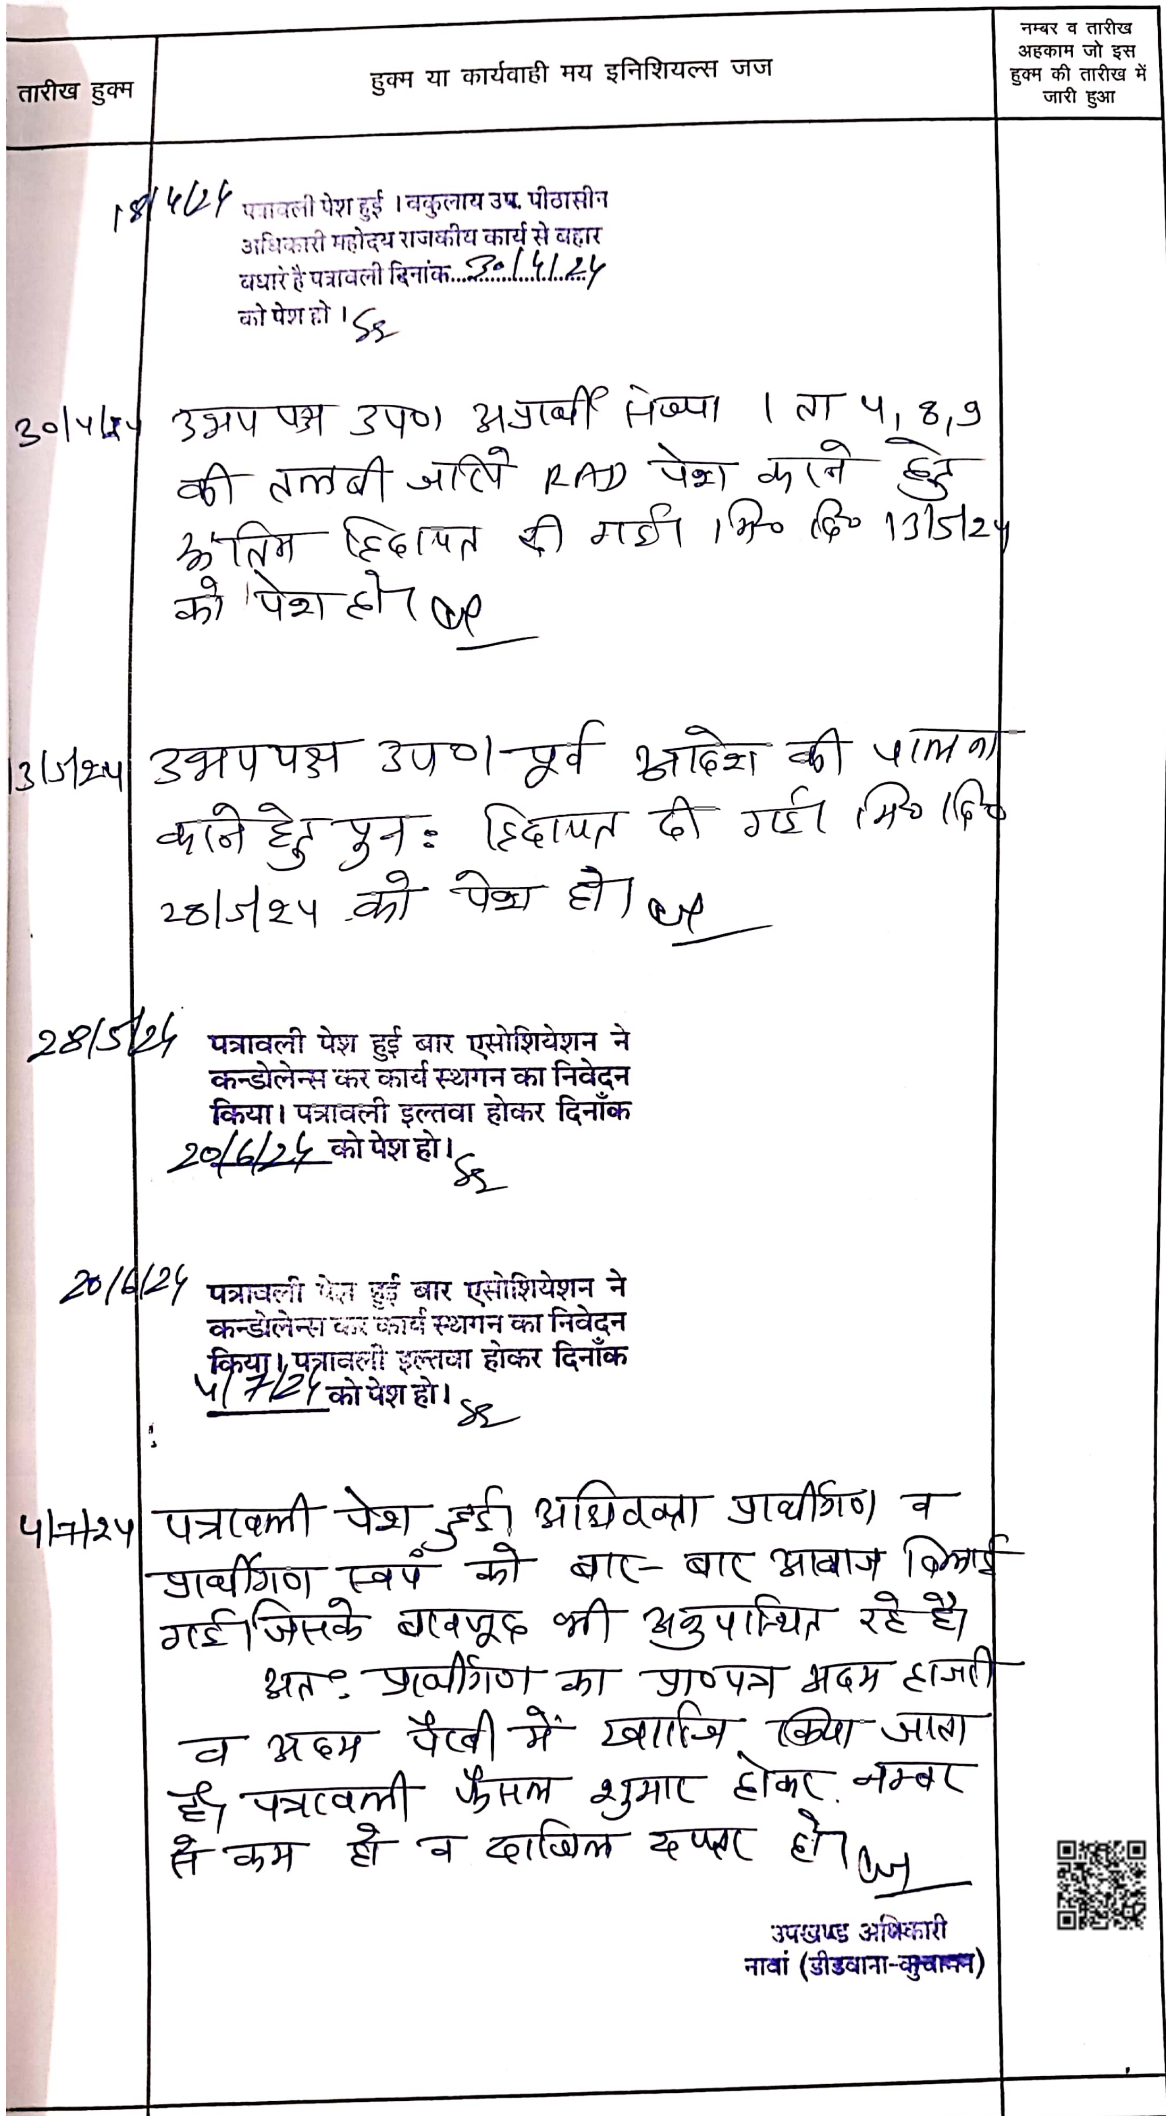 तारीख हुक्म
हुक्म या कार्यवाही मय इनिशियल्स जज
नम्बर व तारीख
अहकाम जो इस
हुक्म की तारीख में
जारी हुआ
18/4/24 पत्रावली पेश हुई । वकुलाय उप. पीठासीन
अधिकारी महोदय राजकीय कार्य से बहार
पधारे है पत्रावली दिनांक...30/4/24
को पेश हो ।
30/4/24 उभय पक्ष उप०। अप्रार्थी संख्या 1 ता 4, 8, 9
की तलबी जरिये RAD पेश करने हेतु
अंतिम हिदायत दी गई। मि० दि० 13/5/24
को पेश हो।
13/5/24 उभयपक्ष उप०। पूर्व आदेश की पालना
करने हेतु पुन: हिदायत दी गई। मि० दि०
28/5/24 को पेश हो।
28/5/24 पत्रावली पेश हुई बार एसोशियेशन ने
कन्डोलेन्स कर कार्य स्थगन का निवेदन
किया। पत्रावली इल्तवा होकर दिनाँक
20/6/24 को पेश हो।
20/6/24 पत्रावली पेश हुई बार एसोशियेशन ने
कन्डोलेन्स कर कार्य स्थगन का निवेदन
किया। पत्रावली इल्तवा होकर दिनाँक
4/7/24 को पेश हो।
4/7/24 पत्रावली पेश हुई। अधिवक्ता प्रार्थीगण व
प्रार्थीगण स्वयं को बार- बार आवाज दिलाई
गई। जिसके बावजूद भी अनुपस्थित रहे है।
अत: प्रार्थीगण का प्रा०पत्र अदम हाजरी
व अदम पैरवी में खारिज किया जाता
है। पत्रावली फैसल शुमार होकर नम्बर
से कम हो व दाखिल दफ्तर हो।
उपखण्ड अधिकारी
नावां (डीडवाना-कुचामन)